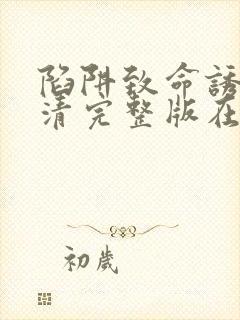 陷阱致命誘
清完整版在
初歲